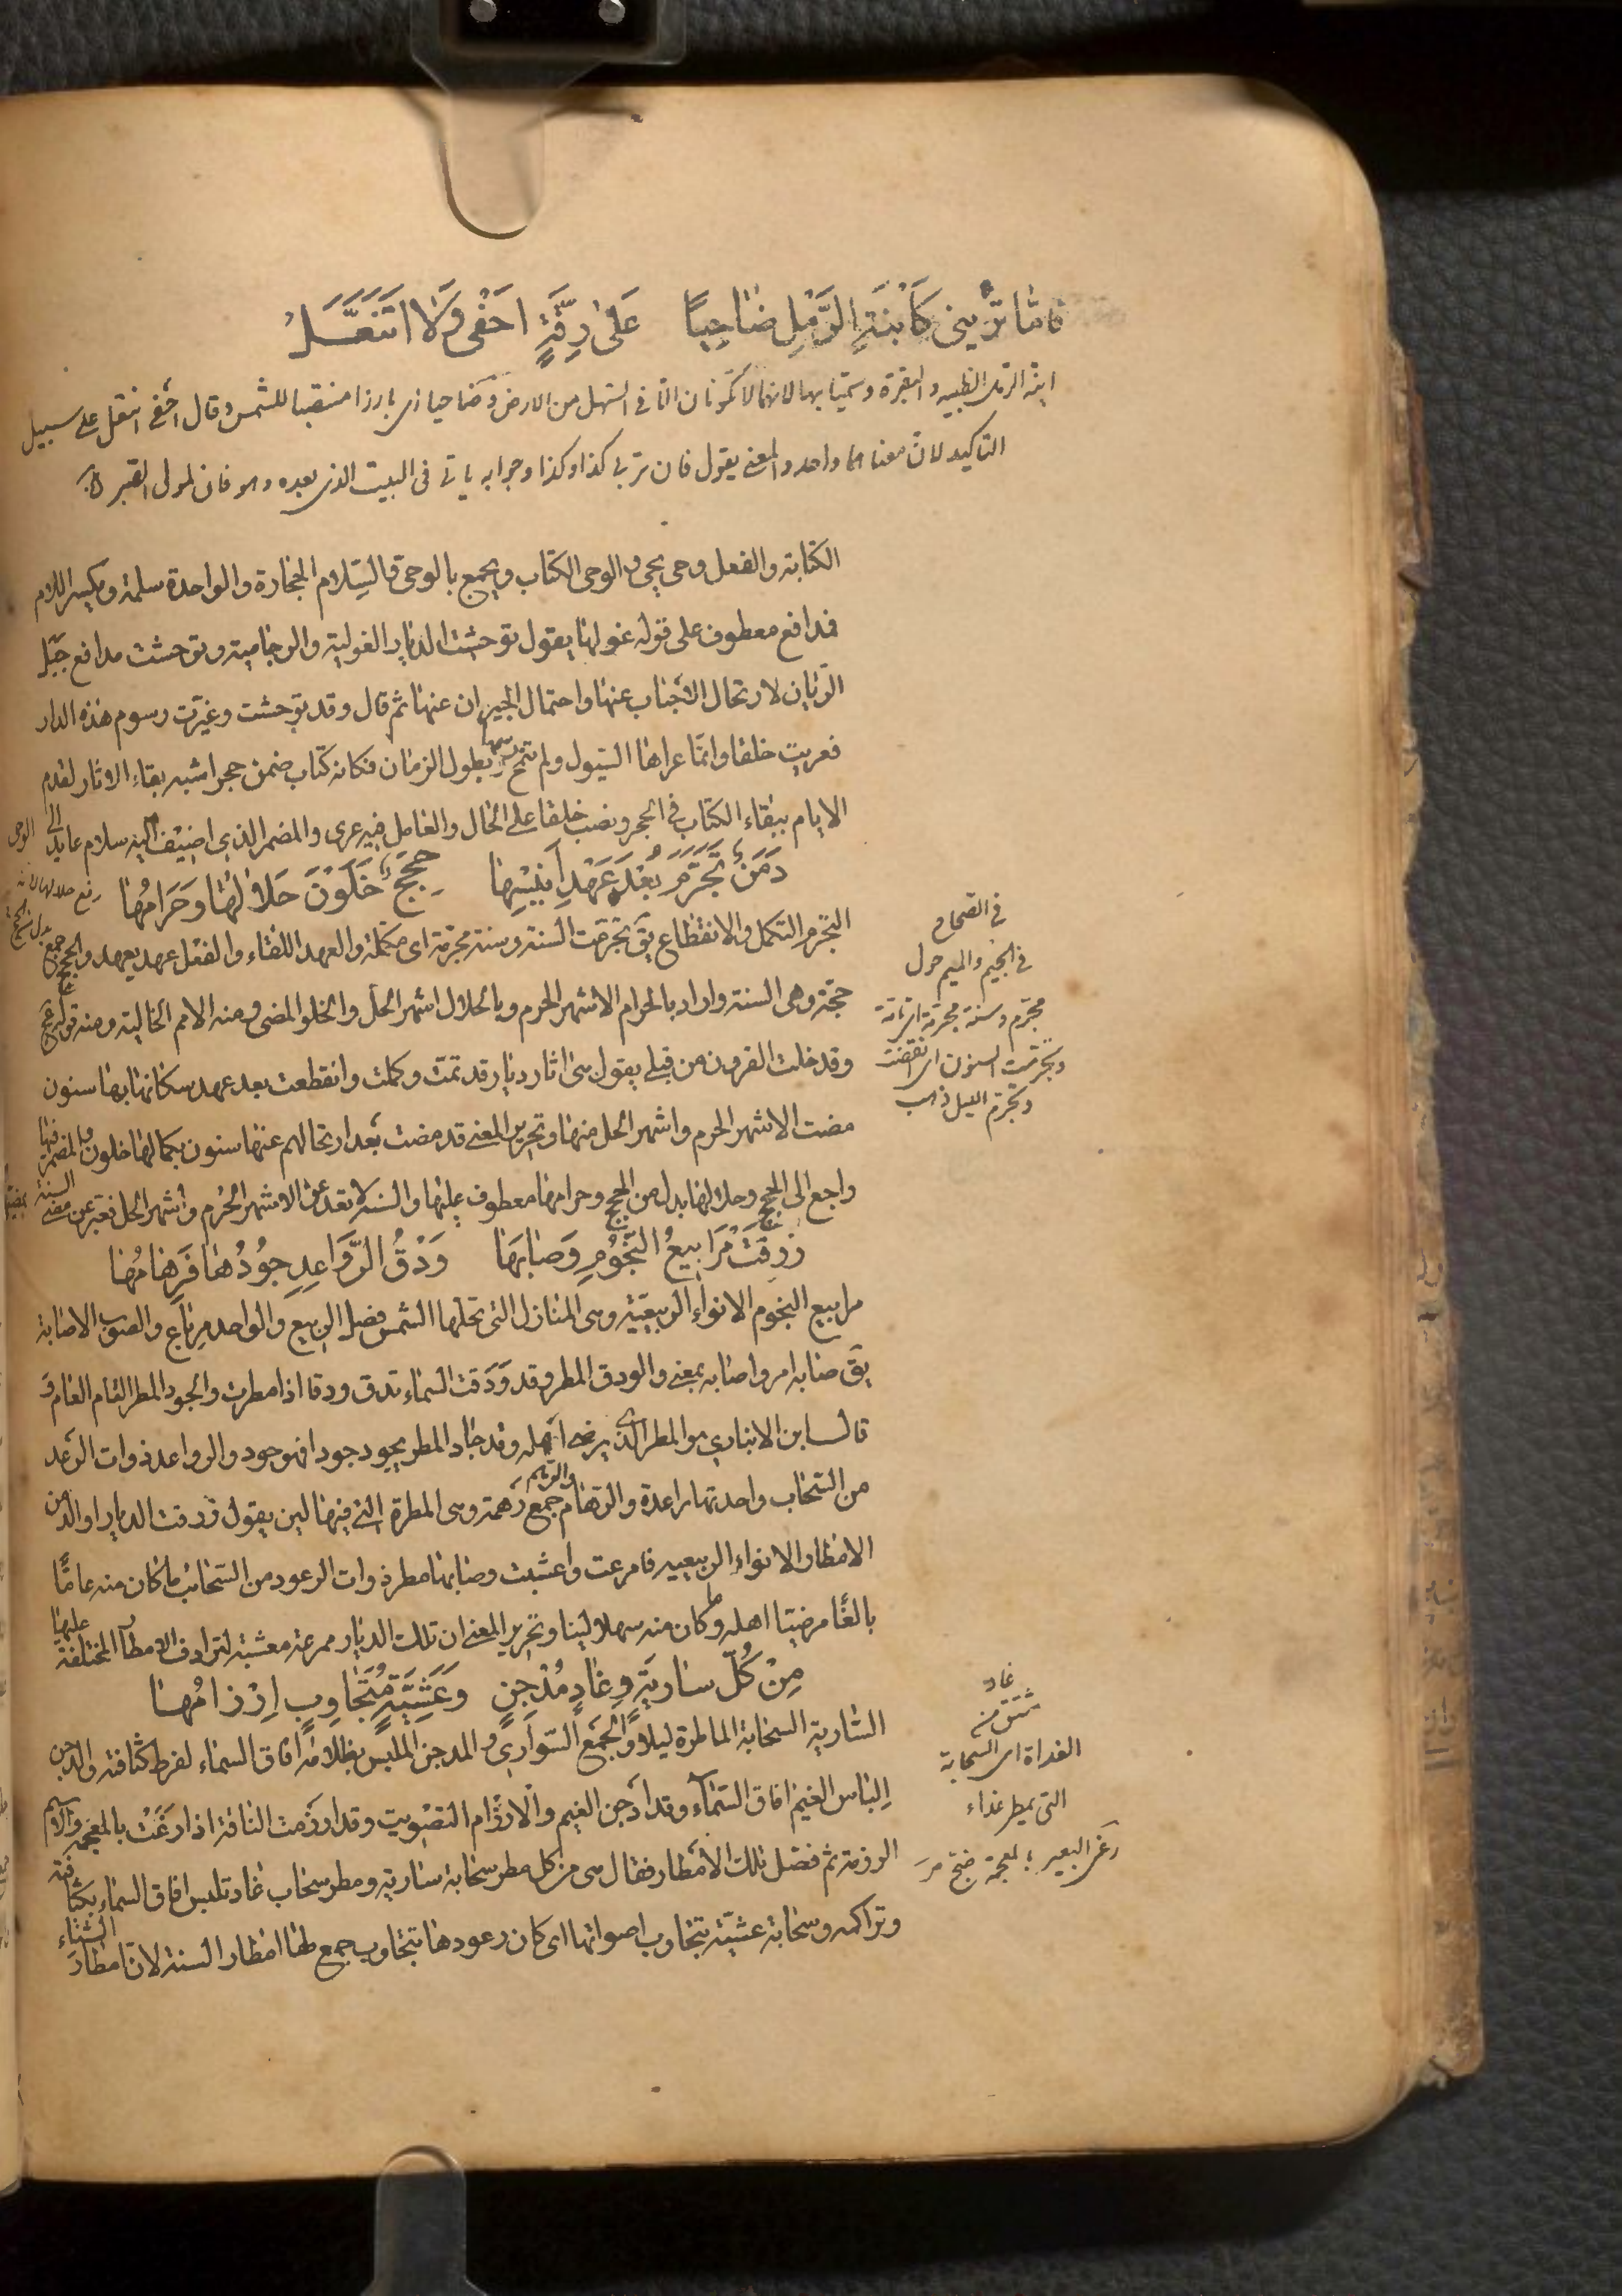 فاما تريني كابنة الرمل ضاحيا على رقة احفى ولا اتنعل
ابنة الرمل الظبيه والبقرة وسميتا بها لانهما لا تكونان الا في السهل من الارض وضاحيا اى بارزا منتصبا للشمس وقال احفى انتعل على سبيل
التاكيد لان معناهما واحد والمعنى يقول فان تريني كذا وكذا وجوابه ياتى فى البيت الذى بعده وهو فانى لمولى الصبر
الكتابة والفعل وحى يحى والوحى الكتاب ويجمع بالوحى قالسلام الحجارة والواحدة سلمة وبكسر اللام
فدافع معطوف على قوله غولها يقول توحشت الديار الغولية والرجامية وتوحشت مدافع جبل
الريان لارتحال الاجناب عنها واحتمال الجيران عنها ثم قال وقد توحشت وغيرت رسوم هذه الدار
فعريت خلقا وانما عراها السيول ولم تنمح رسمها بطول الزمان فكانه كتاب ضمن حجرا شبه بقاء الاثار لقدم
الايام ببقاء الكتاب فى الحجر ونصب خلقا على الحال والعامل فيه عرى والمضمر الذى اضيف اليه سلام عايد الى الوحى
دمن تجرم بعد عهد انيسها حجج خلون حلالها وحرامها
رفع حلالها لانه بدل من الحجج
التجرم التكمل والانقطاع يق تجرمت السنة وسنة مجرمة اى مكملة والعهد اللقاء والفعل عهد يعهد والحجج جمع
حجة وهى السنة واراد بالحرام الاشهر الحرم وبالحلال اشهر الحل والخلو المضى ومنه الامم الخالية ومنه قوله تع
وقد خلت القرون من قبلى يقول هى اثار ديار قد تمت وكملت وانقطعت بعد عهد سكانها بها سنون
مضت الاشهر الحرم واشهر الحل منها وتحرير المعنى قد مضت بعد ارتحالهم عنها سنون بكمالها خلون والمضمر فيها
راجع الى الحجج وحلالها بدل من الحجج وحرامها معطوف عليها والسنة لا تعدو عن الاشهر الحرم واشهر الحل فعبر عن مضى السنة بمضيهما
فى الصحاح
فى الجيم والميم حول
مجرم وسنة مجرمة اى تامة
وتجرمت السنون اى انقضت
وتجرم الليل ذهب
رزقت مرابيع النجوم وصابها ودق الرواعد جودها فرهامها
مرابيع النجوم الانواء الربيعية وهى المنازل التى تحلها الشمس فصل الربيع والواحد مرباع والصوب الاصابة
يق صابه امر واصابه بمعنى والودق المطر وقد ودقت السماء تدق ودقا اذا امطرت والجود المطر التام العام و
قال ابن الانبارى هو المطر الذى يرضى اهله وقد جاد المطر يجود جودا فهو جود والرواعد ذوات الرعد
من السحاب واحدتها راعدة والرهام والرهم جمع رهمة وهى المطرة التى فيها لين يقول رزقت الديار والدمن
الامطار الانواء الربيعيه فامرعت واعشبت وصابها مطر ذوات الرعود من السحائب ما كان منه عاما
بالغا مرضيا اهله وما كان منه سهلا لينا وتحرير المعنى ان تلك الديار ممرعة معشبة لترادف الامطار المختلفة عليها
من كل سارية وغاد مدجن وعشية متجاوب ارزامها
السارية السحابة الماطرة ليلا والجمع السوارى والمدجن الملبس بظلامه افاق السماء لفرط كثافته والدجن
الباس الغيم افاق السماء وقد ادجن الغيم والارزام التصويت وقد ارزمت الناقة اذا رغت بالمعجمة والاسم
الرزمة ثم فصل تلك الامطار فقال هى من كل مطر سحابة سارية ومطر سحاب غاد تلبس افاق السماء بكثافته
وتراكمه وسحابة عشية تتجاوب اصواتها اى كان رعودها تتجاوب جمع لها امطار السنة لان امطار الشتاء
غاد
مشتق من
الغداة اى السحابة
التى يمطر غداء
رغى البعير بالمعجمة ضج مر